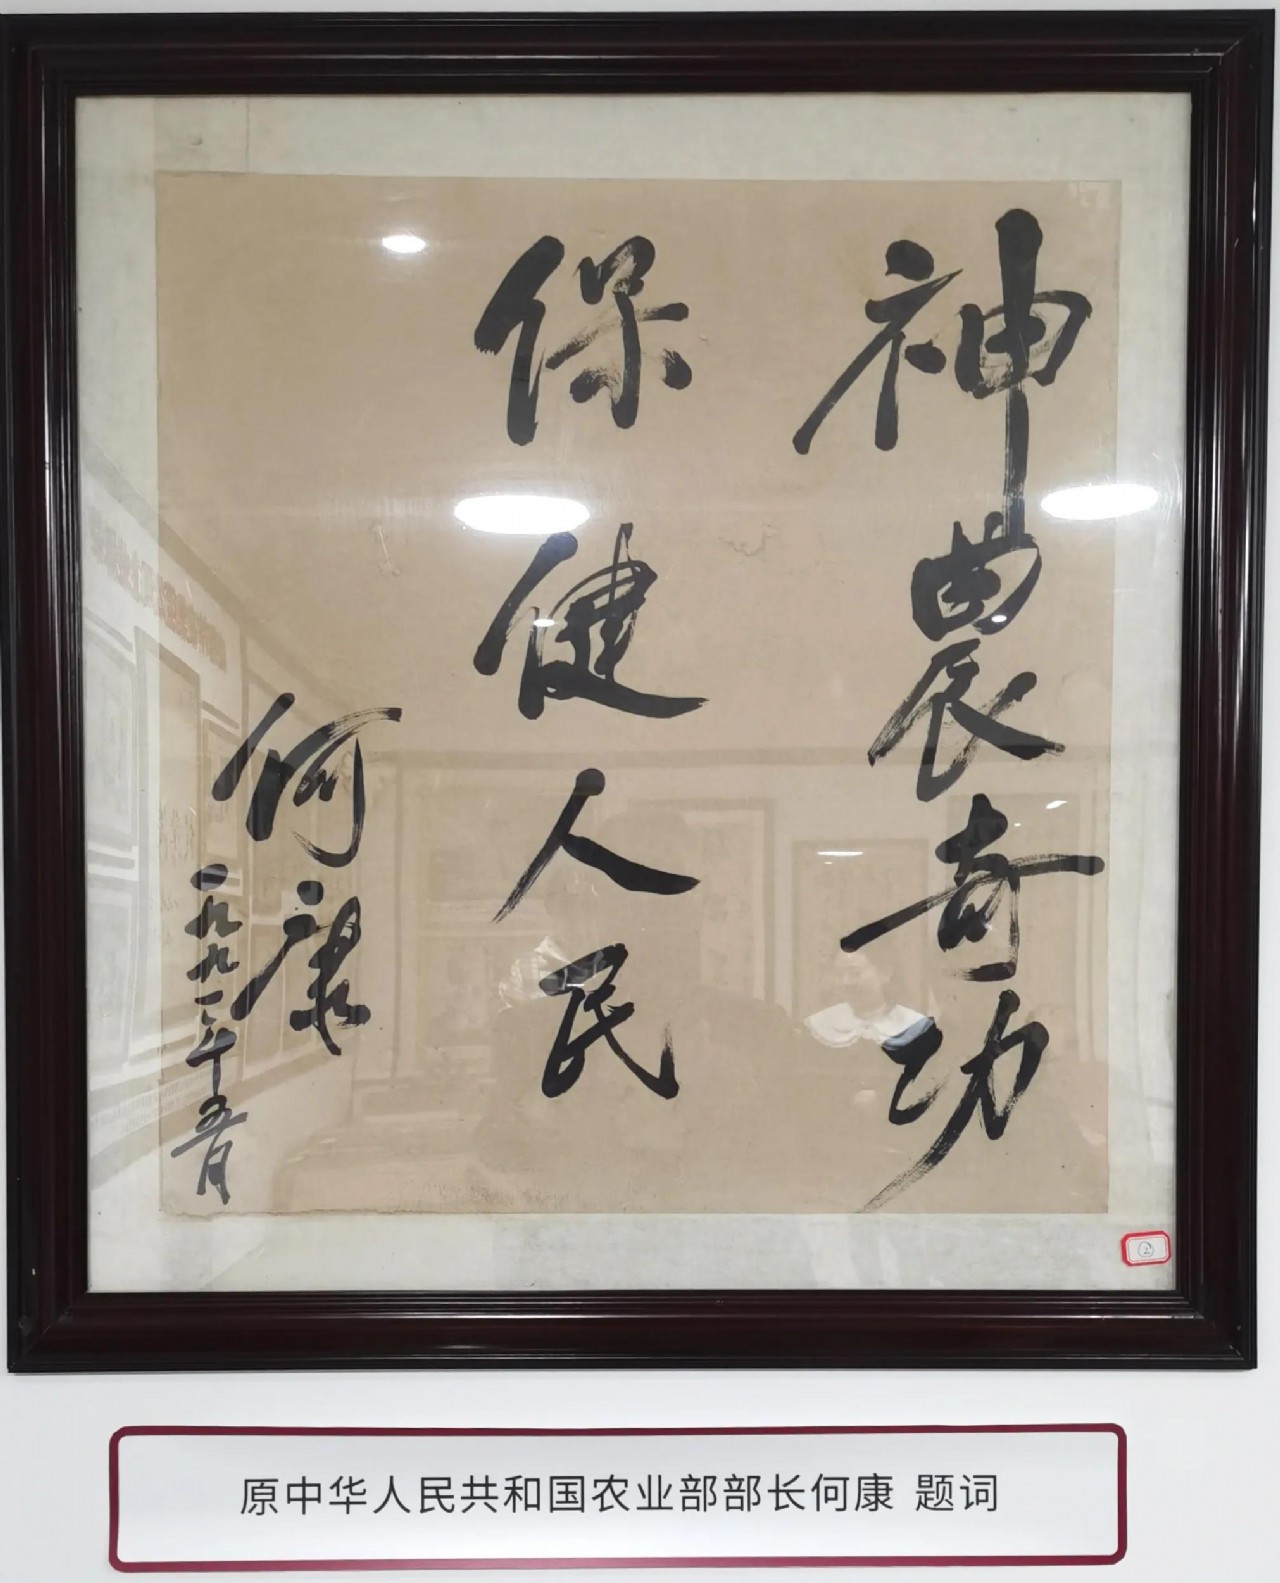 神農奇功
保健人民
何康
一九九一年五月
原中华人民共和国农业部部长何康 题词
②